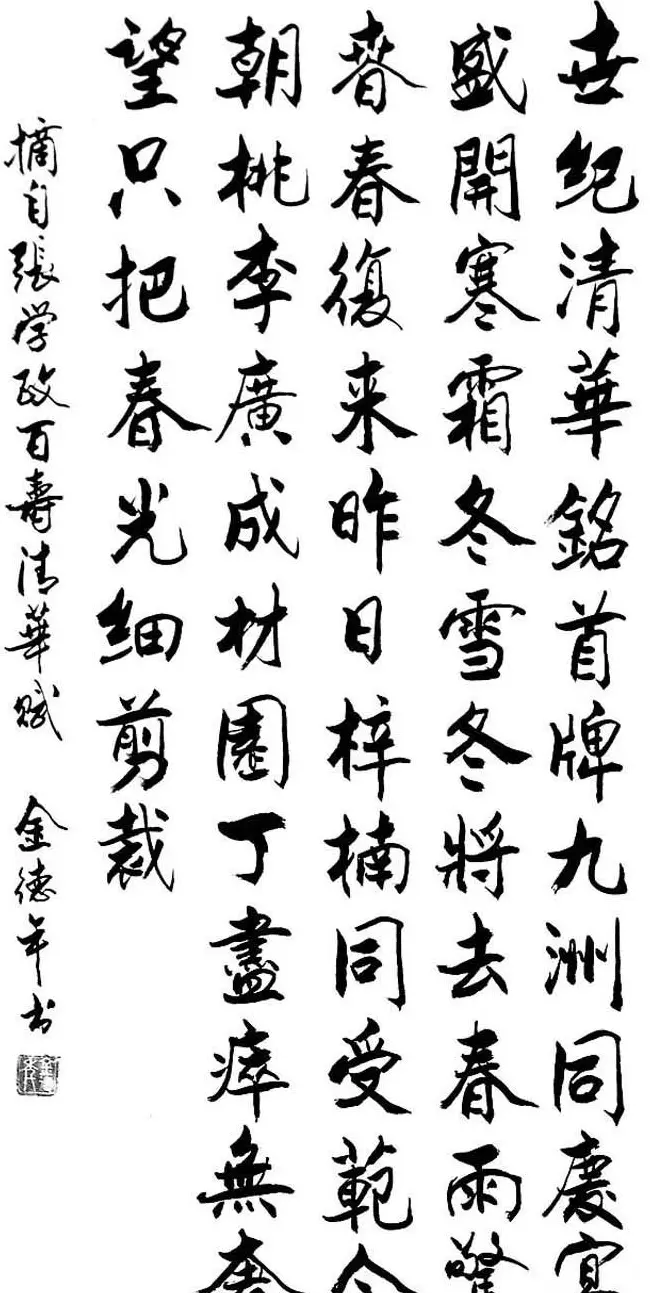 世紀清華銘首牌九洲同慶宴
盛開寒霜冬雪冬將去春雨驚
春春復来昨日梓楠同受範今
朝桃李廣成材園丁盡瘁無奢
望只把春光細剪裁
摘自張学政百壽清華賦 金德年书